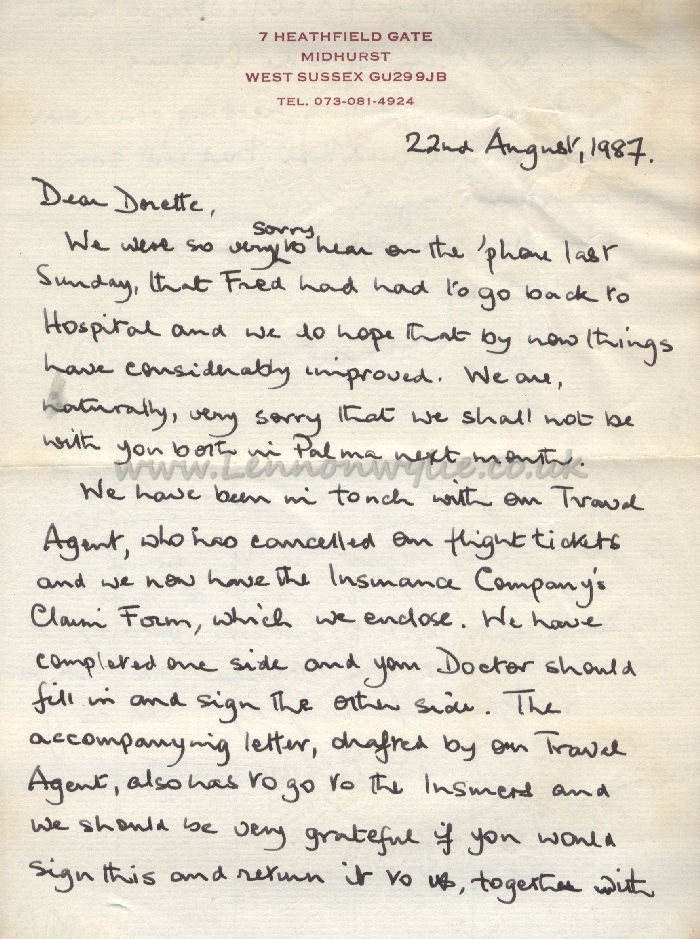 7 HEATHFIELD GATE
MIDHURST
WEST SUSSEX GU29 9JB
TEL. 073-081-4924
22nd August, 1987.
Dear Dorette,
sorry
We were so very to hear on the 'phone last
Sunday, that Fred had had to go back to
Hospital and we do hope that by now things
have considerably improved. We are,
naturally, very sorry that we shall not be
with you both in Palma next month.
www.Lennonwylie.co.uk
We have been in touch with our Travel
Agent, who has cancelled our flight tickets
and we now have the Insurance Company's
Claim Form, which we enclose. We have
completed one side and your Doctor should
fill in and sign the other side. The
accompanying letter, drafted by our Travel
Agent, also has to go to the Insurers and
we should be very grateful if you would
sign this and return it to us, together with